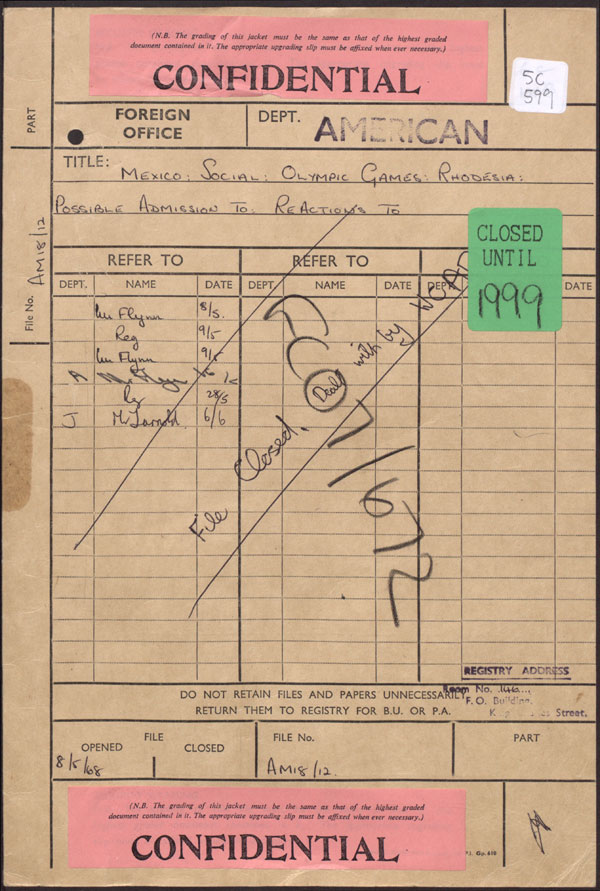 (N.B. The grading of this jacket must be the same as that of the highest graded
document contained in it. The appropriate upgrading slip must be affixed when ever necessary.)
CONFIDENTIAL
SC
599
PART
FOREIGN
OFFICE
DEPT.
AMERICAN
TITLE:
MEXICO: SOCIAL: OLYMPIC GAMES: RHODESIA:
POSSIBLE ADMISSION TO: REACTIONS TO
CLOSED
UNTIL
1999
File No. AM18/12
REFER TO
REFER TO
DEPT. NAME DATE DEPT. NAME DATE DEPT. DATE
Mr Flynn 8/5.
Reg 9/5
Mr Flynn 9/5
A
Rg 28/5
J 6/6
FCO 7/672
File Closed. Dealt with by WCAD
REGISTRY ADDRESS
Room No. 146
F.O. Building,
Street.
DO NOT RETAIN FILES AND PAPERS UNNECESSARILY
RETURN THEM TO REGISTRY FOR B.U. OR P.A.
FILE
OPENED CLOSED
8/5/68
FILE No.
AM18/12.
PART
(N.B. The grading of this jacket must be the same as that of the highest graded
document contained in it. The appropriate upgrading slip must be affixed when ever necessary.)
CONFIDENTIAL
Gp. 610